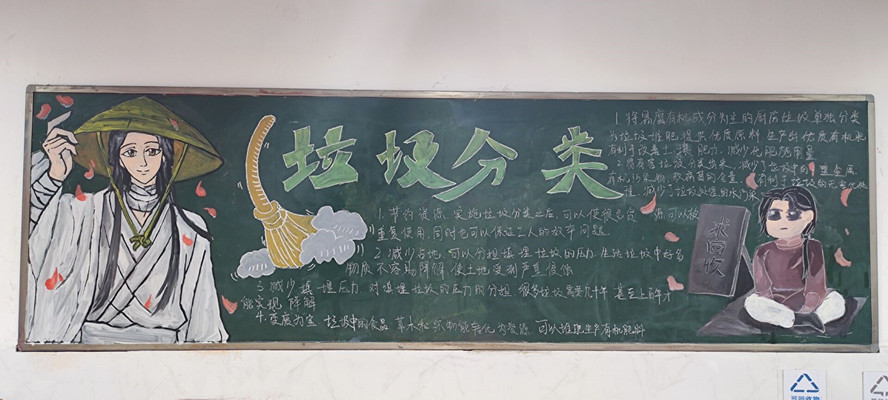 垃圾分类
1.节约资源 实施垃圾分类之后,可以使很多资源可以被
重复使用,同时也可以保证工人的效率问题.
2.减少占地,可以分担填埋垃圾的压力.生活垃圾中好多
物质不容易降解 使土地受到严重侵蚀
3.减少填埋压力 对填埋垃圾的压力的分担 很多垃圾需要几十年 甚至上百年才
能实现降解
4.变废为宝 垃圾中的食品 草木和织物能转化为资源 可以堆肥生产有机肥料
1.将易腐有机成分为主的厨房垃圾单独分类
为垃圾堆肥提供优质原料 生产出优质有机肥
有利于改善土壤肥力,减少化肥施用量
2.将有害垃圾分类出来,减少了垃圾中的重金属
有机污染物 致病菌的含量 有利于垃圾的无害化处
理,减少了垃圾处理的水污染
求回收
可回收物